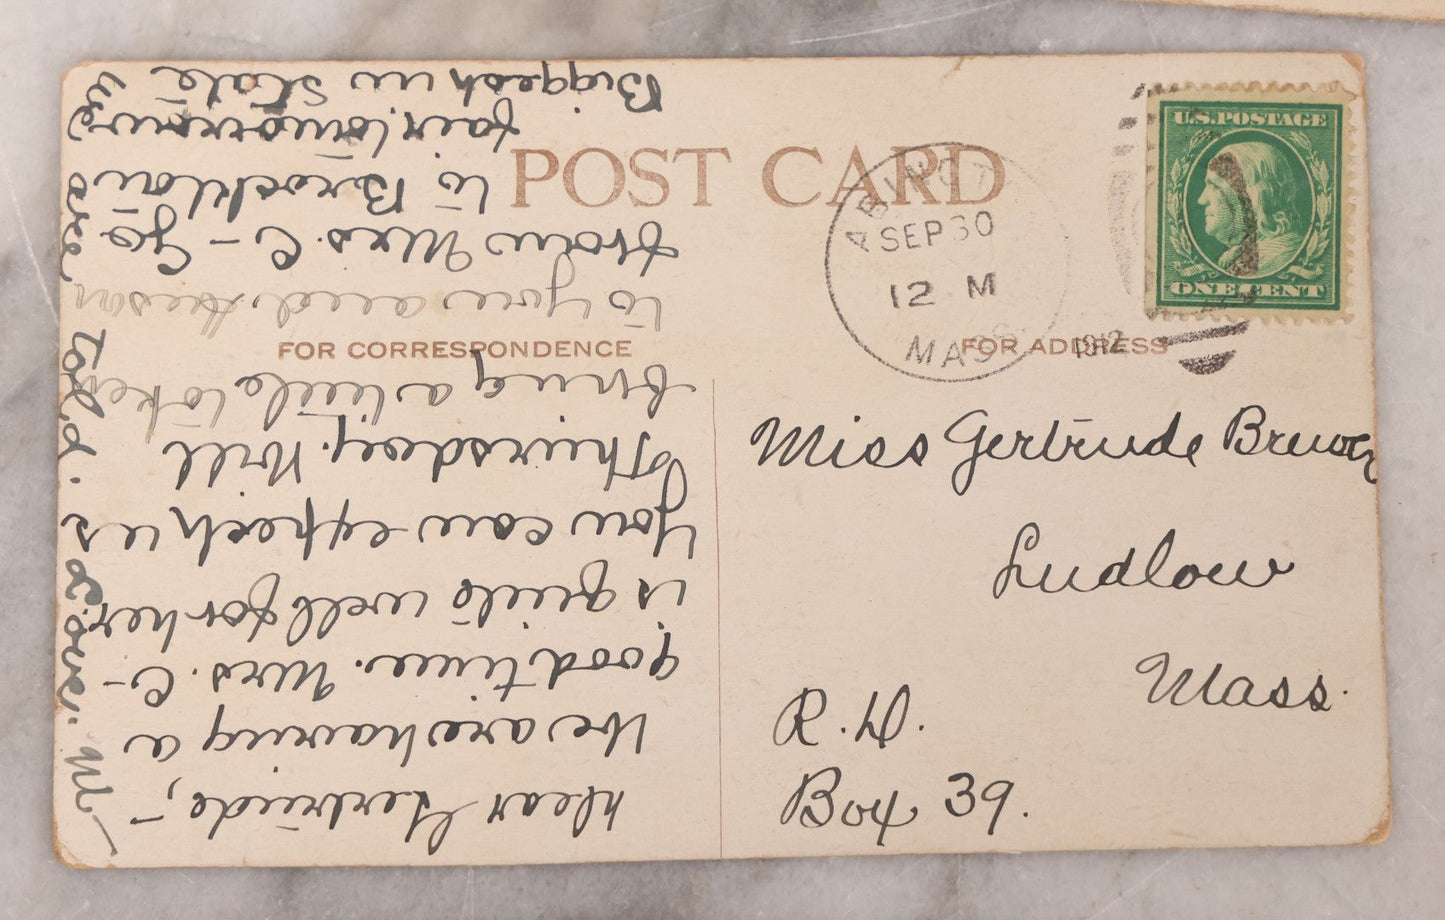 POST CARD
FOR CORRESPONDENCE
FOR ADDRESS
U.S. POSTAGE
ONE CENT
ABINGT
SEP 30
12 M
MASS
1912
Miss Gertrude Brewer
Ludlow
Mass.
R. D.
Box 39.
Dear Gertrude,-
We are having a
good time. Mrs. C-
is quite well for her.
You can expect us
Thursday. Will
bring a little token
to you and
from Mrs. C- Go
to Brockton
fair tomorrow
Biggest in State
We
are
told.
M-